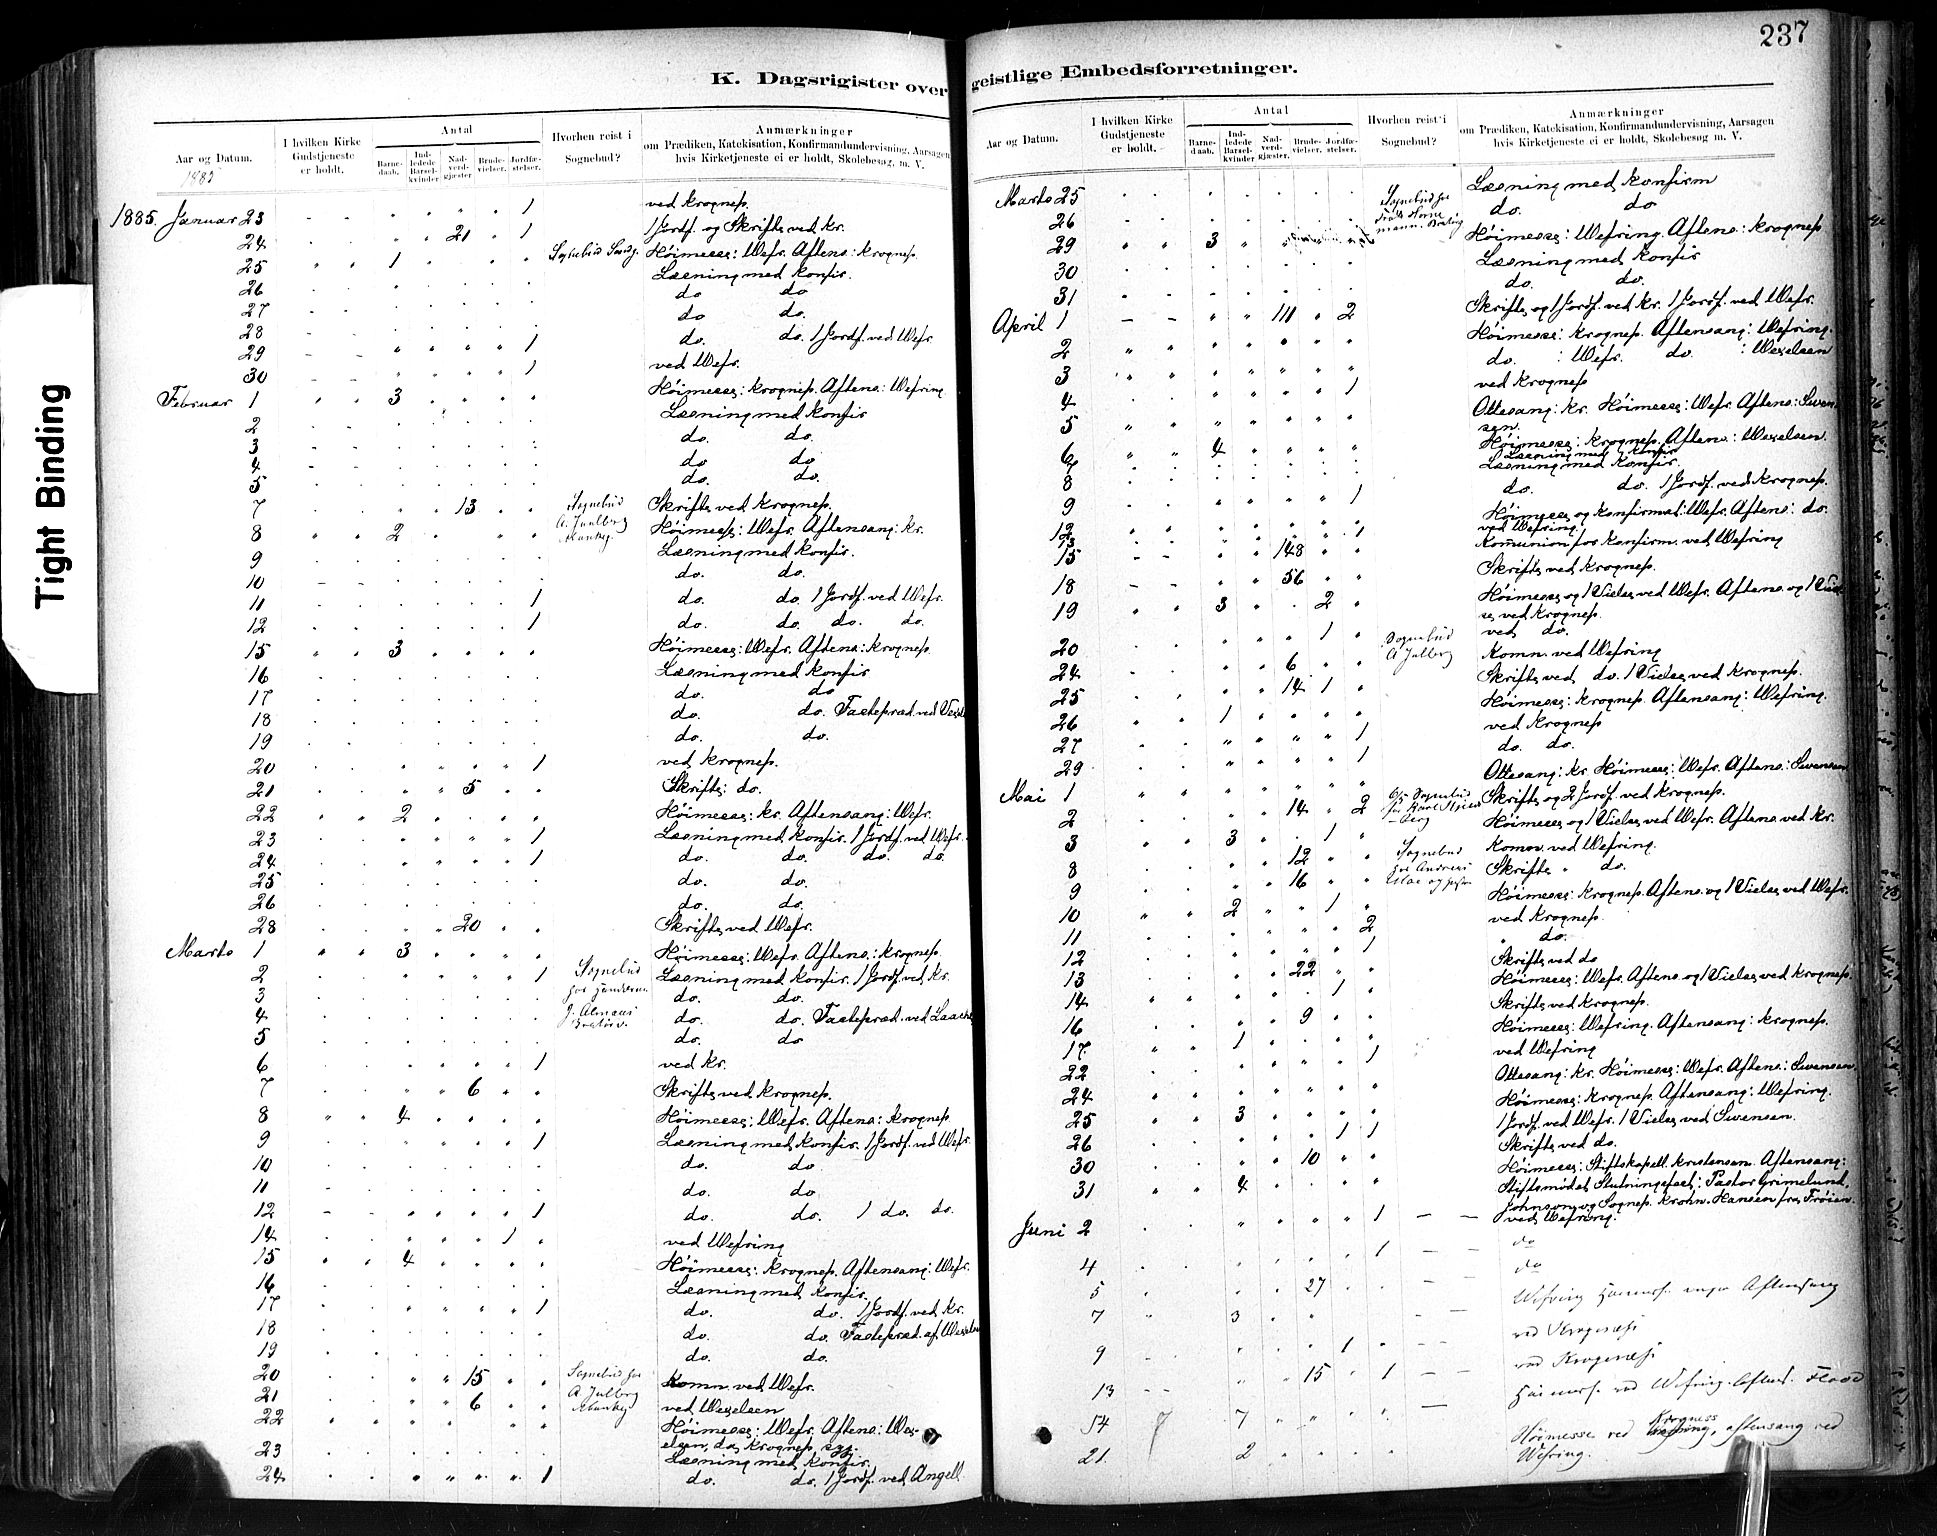 237
K. Dagsrigister over geistlige Embedsforretninger.
Tight Binding
Aar og Datum. 1885
I hvilken Kirke Gudstjeneste er holdt.
Antal
Barnedaab. Indledede Barselkvinder Nadverdgjæster. Brudevielser. Jordfæstelser.
Hvorhen reist i Sognebud?
Anmærkninger
om Prædiken, Katekisation, Konfirmandundervisning, Aarsagen
hvis Kirketjeneste ei er holdt, Skolebesøg, m. V.
1885. Januar 23 1 ved Krognes.
24 21 1 1 Jordf. og Skrifts ved Kr.
25 1 Høimesse: Wefr. Aftens: Krognes.
26 Læsning med Konfir.
27 do do
28 do do.
29 1 do. do. 1 Jordf. ved Wefr.
30 1 ved Wefr.
Februar 1 3 Høimesse: Krognes. Aftens: Wefring
2 Læsning med Konfir
3 do. do.
4 do do
5 do. do.
7 13 Sognebud Skrifts ved Krognes.
8 2 A. Juulberg Høimesse: Wefr. Aftensang: Kr.
9 Læsning med Konfir.
10 do. do.
11 1 do. do. 1 Jordf. ved Wefr.
12 1 do. do. do. do.
15 3 Høimesse: Wefr. Aftens: Krognes.
16 Læsning med Konfir
17 do. do
18 do. do. Fastepræd. ved
19 do. do.
20 1 ved Krognes.
21 5 Skrifts: do.
22 2 Høimesse: Kr. Aftensang: Wefr.
23 1 Læsning med Konfir. 1 Jordf. ved Wefr.
24 1 do. do. do. do.
25 do. do.
26 do. do.
28 20 Skrifts ved Wefr.
Marts 1 3 Høimesse: Wefr. Aftens: Krognes.
2 1 Sognebud Læsning med Konfir. 1 Jordf. ved Kr.
3 hos do. do.
4 do. do. Fastepræd. ved
5 do. do
6 1 ved Kr.
7 6 Skrifts ved Krognes.
8 4 Høimesse: Wefr. Aftens: Krognes
9 1 Læsning med Konfir. 1 Jordf. ved Wefr.
10 do. do
11 do. do
12 1 do. do. 1 do. do.
14 1 ved Wefring
15 4 Høimesse: Krognes. Aftensang: Wefr.
16 Læsning med Konfir.
17 1 do. do. 1 Jordf. ved Kr.
18 do. do. Fastepræd. af
19 do. do.
20 15 Sognebud hos Komn. ved Wefr.
21 6 A. Julberg ved Wesselsen
22 Høimesse: Wefr. Aftens: Wes-
selsen, da Krognes syg.
23 Læsning med Konfir.
24 1 do. do. 1 Jordf. ved Angell
Aar og Datum.
I hvilken Kirke Gudstjeneste er holdt.
Antal
Barnedaab. Indledede Barselkvinder Nadverdgjæster. Brudevielser. Jordfæstelser.
Hvorhen reist i Sognebud?
Anmærkninger
om Prædiken, Katekisation, Konfirmandundervisning, Aarsagen
hvis Kirketjeneste ei er holdt, Skolebesøg m. V.
Marts 25 Sognebud hos Læsning med Konfirm
26 do. do
29 3 Høimesse: Wefring. Aftens: Krognes
30 Læsning med Konfir
31 do. do.
April 1 111 2 Skrifts og 1 Jordf. ved Kr. 1 Jordf. ved Wefr.
2 Høimesse: Krognes. Aftensang: Wefring.
3 do. : Wefr. do. : Wesselsen
4 1 ved Krognes
5 Ottesang: Kr. Høimesse: Wefr. Aftens: Svend-
sen.
6 4 Høimesse: Krognes. Aftens: Wesselsen.
7 Læsning med Konfir
8 Læsning med Konfir.
9 1 do. do. 1 Jordf. ved Krognes.
12 1 Høimesse og Konfirmat: Wefr. Aftens: do.
ved Wefring
15 148 Komunion for Konfirm. ved Wefring
18 56 Skrifts ved Krognes.
19 3 2 Høimesse og 1 Vielse ved Wefr. Aftens og 1 Viel-
se ved Krognes.
20 1 Sognebud ved do.
24 6 A Julberg Komn. ved Wefring
25 14 1 Skrifts ved do. 1 Vielse ved Krognes.
26 1 Høimesse: Krognes. Aftensang: Wefring.
27 1 ved Krognes
29 1 do. do.
Mai 1 Ottesang: Kr. Høimesse: Wefr. Aftens: Svensen
2 14 2 Skrifts og 2 Jordf. ved Krognes.
3 3 1 Høimesse og 1 Vielse ved Wefr. Aftens ved Kr.
8 12 Sognebud Komn. ved Wefring.
9 16 hos Andreas Skrifts " do.
10 2 1 Høimesse: Krognes. Aftens og 1 Vielse ved Wefr.
11 2 ved Krognes.
12 1 " do.
13 22 Skrifts ved do
14 1 Høimesse: Wefr. Aftens og 1 Vielse ved Krognes.
16 9 Skrifts ved Krognes.
17. 1 Høimesse: Wefring. Aftensang: Krognes.
22 1 ved Wefring
24 Ottesang: Kr. Høimesse: Wefr. Aftens: Svensen
25 3 Høimesse: Krognes. Aftensang: Wefring.
26 1 1 1 Jordf. ved Wefr. 1 Vielse ved Svensen.
30 10 Skrifts ved do.
31 4 Høimesse: Stiftskapell. Kristensen. Aftensang:
Stiftsmødets Slutningsfest: Pastor Grimelund,
Johnson og Sognep. Krohn-Hansen fra Frøien.
Juni 2 1 ved Wefring.
4 1 do
5 27 do
7 3 Wefring Høimesse ingen Aftensang
9 1 ved Krognæss
13 15 1 ved Krognæss
14 7 7 Høimesse ved Krogness Wefring, aftensang ved
21. 2 Wefring.